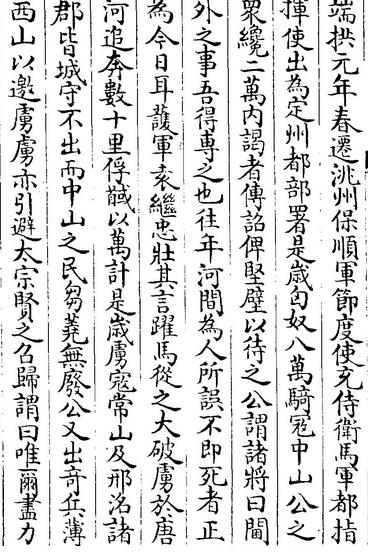 端拱元年春遷洮州保順軍節度使充侍衛馬軍都指
揮使出為定州都部署是歲匈奴八萬騎寇中山公之
衆纔二萬內謁者傳詔俾堅壁以待之公謂諸將曰閫
外之事吾得專之也往年河間為人所誤不即死者正
為今日耳護軍袁繼忠壯其言躍馬從之大破虜於唐
河追奔數十里俘馘以萬計是歲虜寇常山及邢洺諸
郡皆城守不出而中山之民芻蕘無廢公又出奇兵薄
西山以邀虜虜亦引避太宗賢之召歸謂曰唯爾盡力